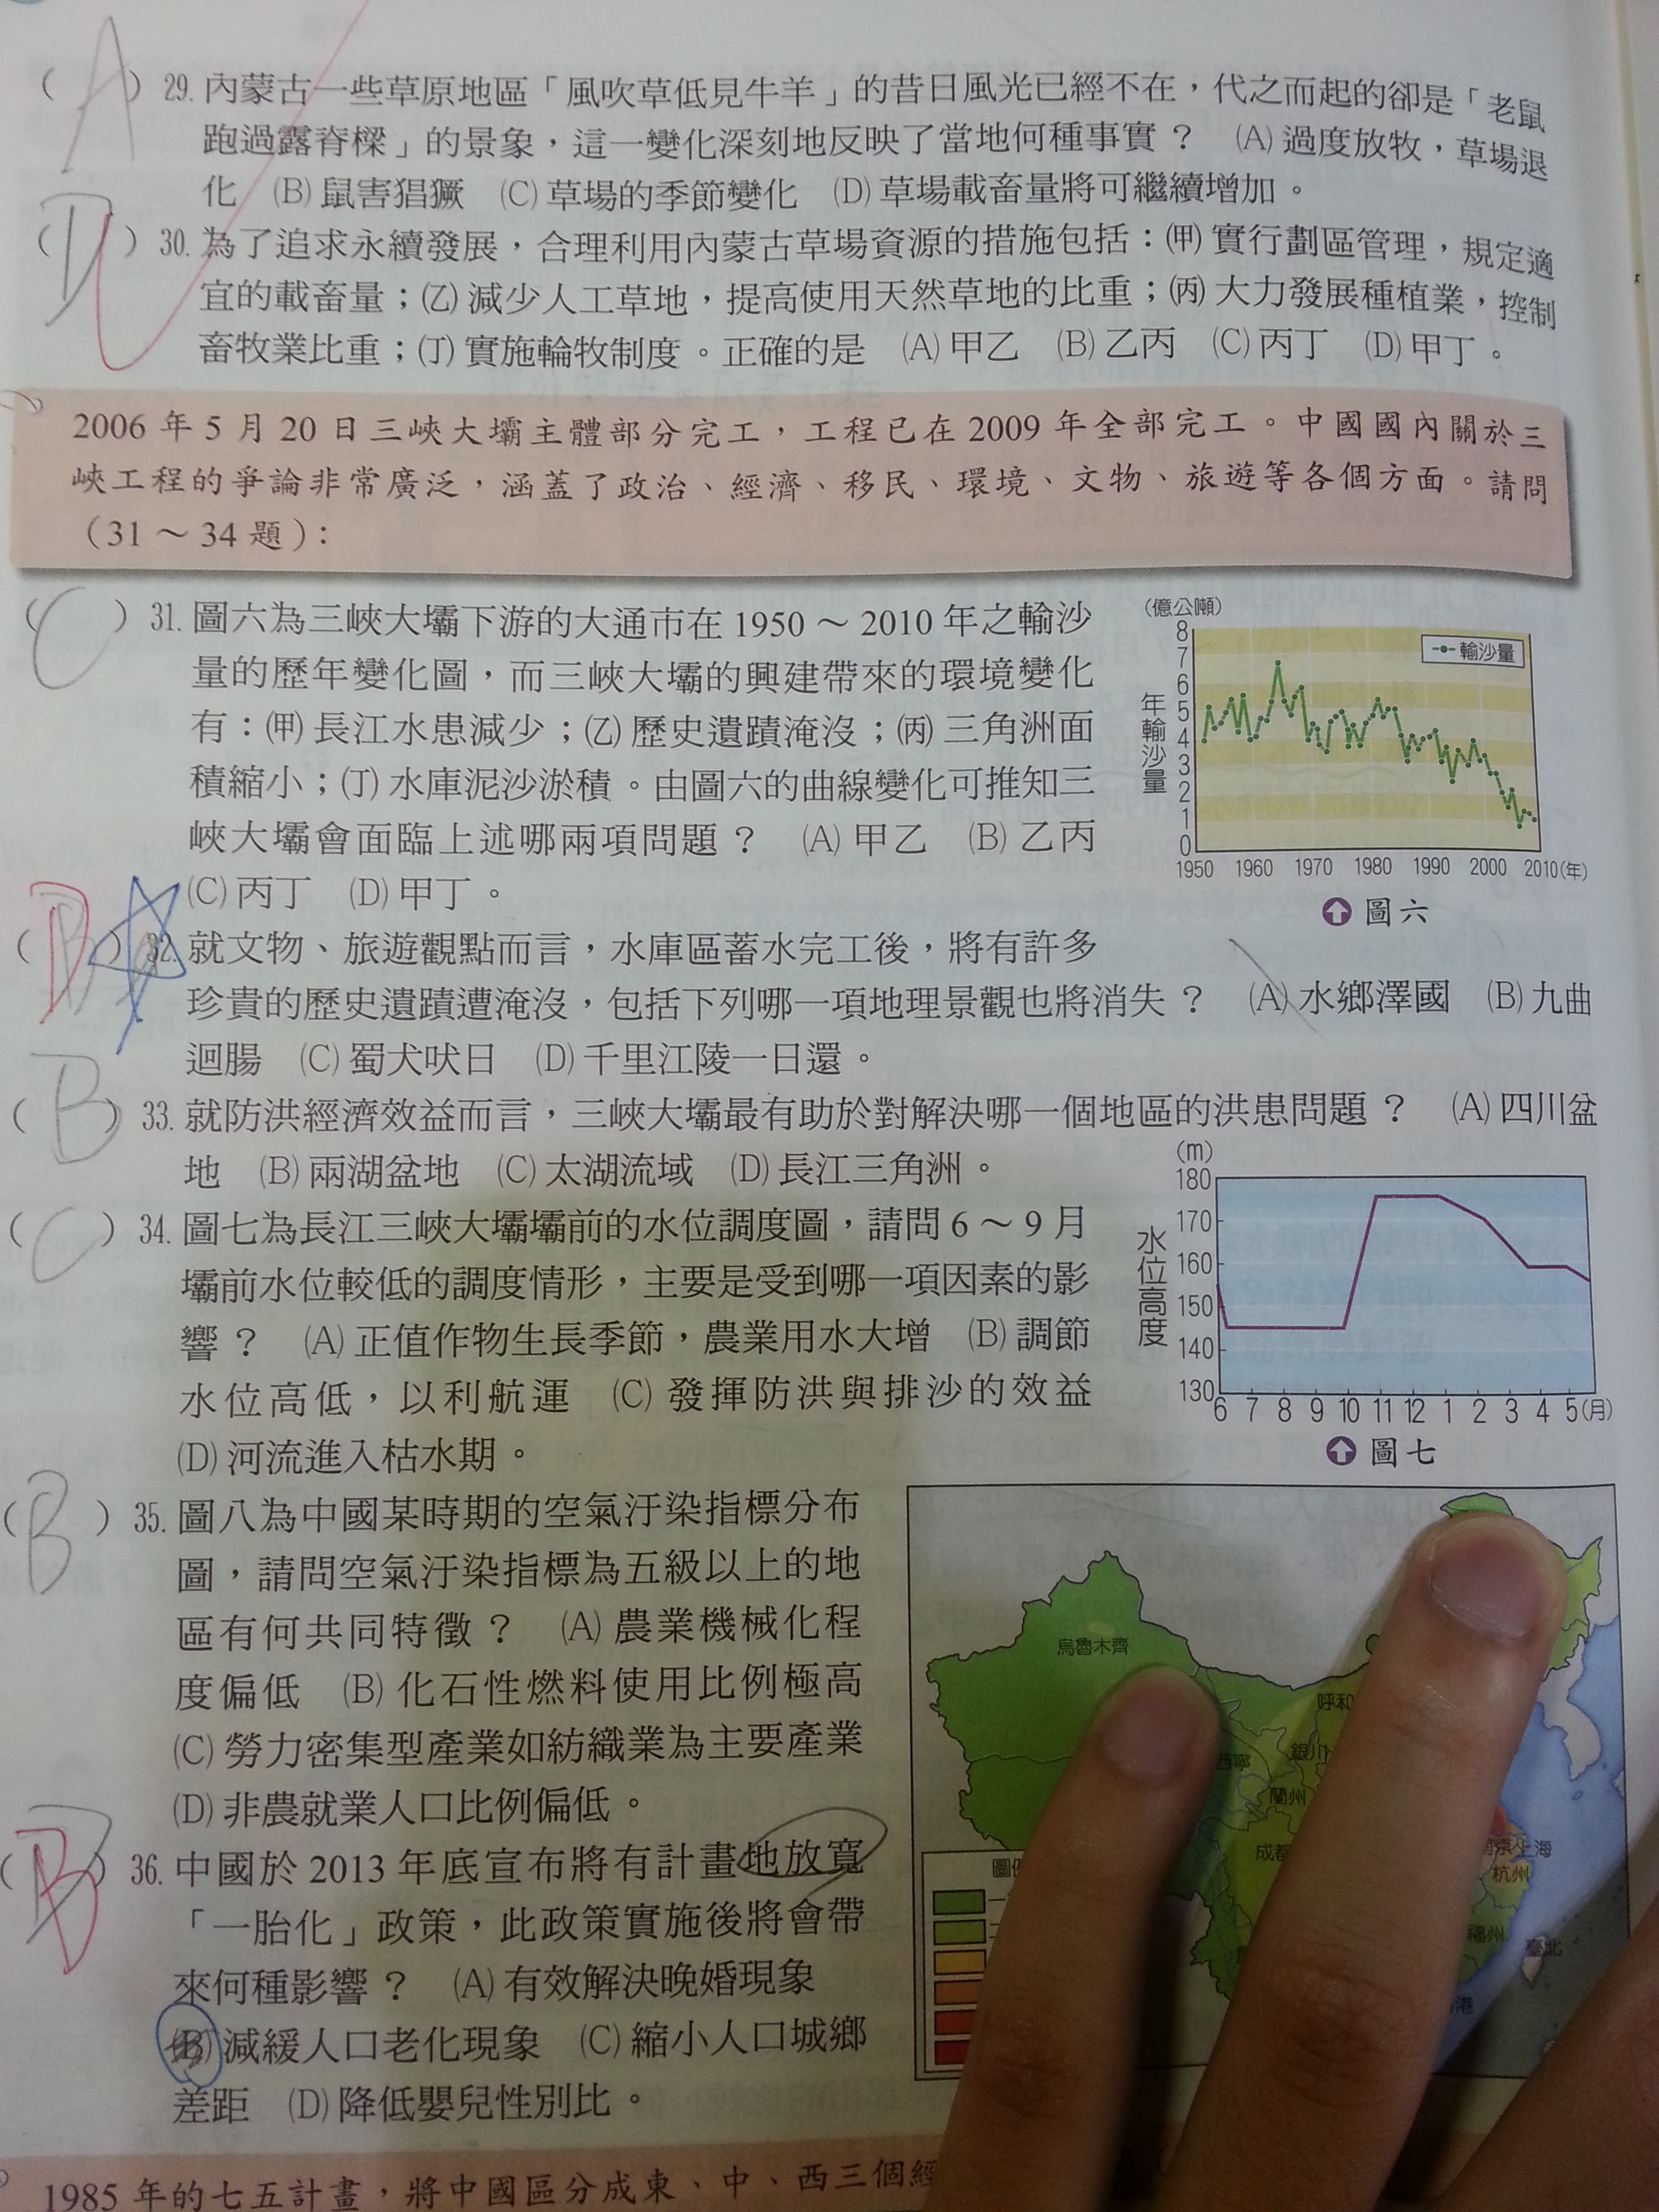 A
( ) 29. 內蒙古一些草原地區「風吹草低見牛羊」的昔日風光已經不在，代之而起的卻是「老鼠
跑過露脊樑」的景象，這一變化深刻地反映了當地何種事實？ (A) 過度放牧，草場退
化 (B) 鼠害猖獗 (C) 草場的季節變化 (D) 草場載畜量將可繼續增加。
D
( ) 30. 為了追求永續發展，合理利用內蒙古草場資源的措施包括：(甲) 實行劃區管理，規定適
宜的載畜量；(乙) 減少人工草地，提高使用天然草地的比重；(丙) 大力發展種植業，控制
畜牧業比重；(丁) 實施輪牧制度。正確的是 (A) 甲乙 (B) 乙丙 (C) 丙丁 (D) 甲丁。
2006 年 5 月 20 日三峽大壩主體部分完工，工程已在 2009 年全部完工。中國國內關於三
峽工程的爭論非常廣泛，涵蓋了政治、經濟、移民、環境、文物、旅遊等各個方面。請問
（31～34 題）：
C
( ) 31. 圖六為三峽大壩下游的大通市在 1950～2010 年之輸沙
量的歷年變化圖，而三峽大壩的興建帶來的環境變化
有：(甲) 長江水患減少；(乙) 歷史遺蹟淹沒；(丙) 三角洲面
積縮小；(丁) 水庫泥沙淤積。由圖六的曲線變化可推知三
峽大壩會面臨上述哪兩項問題？ (A) 甲乙 (B) 乙丙
(C) 丙丁 (D) 甲丁。
(億公噸)
年輸沙量
輸沙量
8
7
6
5
4
3
2
1
0
1950 1960 1970 1980 1990 2000 2010(年)
圖六
D
( ) 32. 就文物、旅遊觀點而言，水庫區蓄水完工後，將有許多
珍貴的歷史遺蹟遭淹沒，包括下列哪一項地理景觀也將消失？ (A) 水鄉澤國 (B) 九曲
迴腸 (C) 蜀犬吠日 (D) 千里江陵一日還。
B
( ) 33. 就防洪經濟效益而言，三峽大壩最有助於對解決哪一個地區的洪患問題？ (A) 四川盆
地 (B) 兩湖盆地 (C) 太湖流域 (D) 長江三角洲。
C
( ) 34. 圖七為長江三峽大壩壩前的水位調度圖，請問 6～9 月
壩前水位較低的調度情形，主要是受到哪一項因素的影
響？ (A) 正值作物生長季節，農業用水大增 (B) 調節
水位高低，以利航運 (C) 發揮防洪與排沙的效益
(D) 河流進入枯水期。
(m)
水位高度
180
170
160
150
140
130
6 7 8 9 10 11 12 1 2 3 4 5(月)
圖七
B
( ) 35. 圖八為中國某時期的空氣汙染指標分布
圖，請問空氣汙染指標為五級以上的地
區有何共同特徵？ (A) 農業機械化程
度偏低 (B) 化石性燃料使用比例極高
(C) 勞力密集型產業如紡織業為主要產業
(D) 非農就業人口比例偏低。
烏魯木齊
呼和
銀川
西寧
蘭州
成都
上海
杭州
福州
臺北
港
B
( ) 36. 中國於 2013 年底宣布將有計畫地放寬
「一胎化」政策，此政策實施後將會帶
來何種影響？ (A) 有效解決晚婚現象
(B) 減緩人口老化現象 (C) 縮小人口城鄉
差距 (D) 降低嬰兒性別比。
1985 年的七五計畫，將中國區分成東、中、西三個經